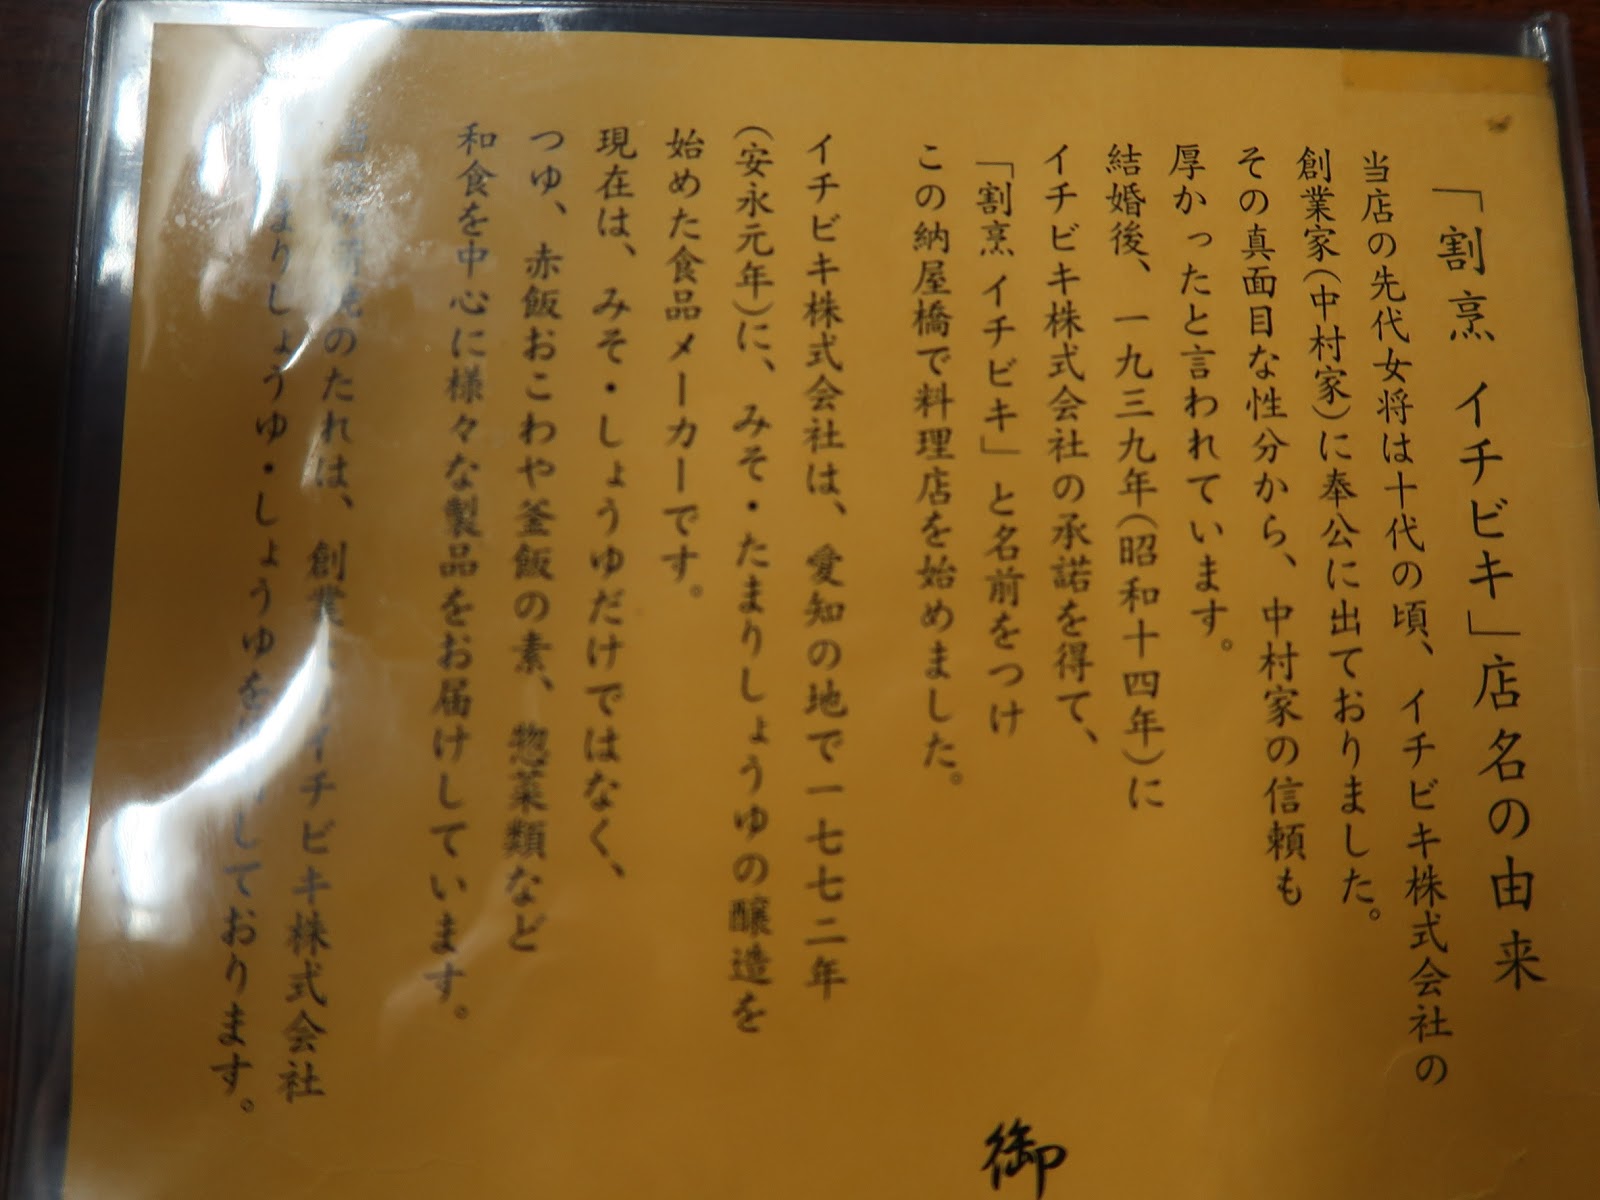 「割烹 イチビキ」店名の由来
当店の先代女将は十代の頃、イチビキ株式会社の
創業家(中村家)に奉公に出ておりました。
その真面目な性分から、中村家の信頼も
厚かったと言われています。
結婚後、一九三九年(昭和十四年)に
イチビキ株式会社の承諾を得て、
「割烹 イチビキ」と名前をつけ
この納屋橋で料理店を始めました。
イチビキ株式会社は、愛知の地で一七七二年
(安永元年)に、みそ・たまりしょうゆの醸造を
始めた食品メーカーです。
現在は、みそ・しょうゆだけではなく、
つゆ、赤飯おこわや釜飯の素、惣菜類など
和食を中心に様々な製品をお届けしています。
のたれは、創業 イチビキ株式会社
まりしょうゆ・しょうゆを しております。
御